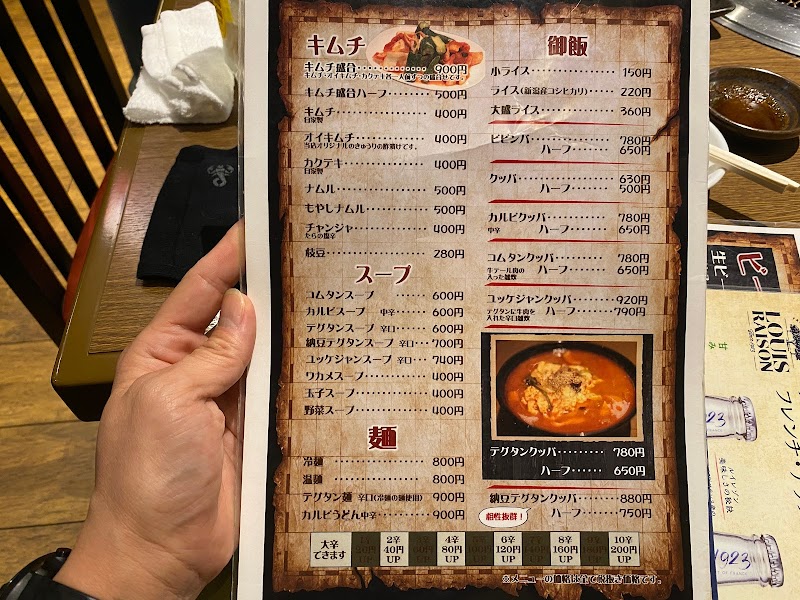 キムチ
キムチ盛合 900円
キムチ・オイキムチ・カクテキ各一人前ずつの盛合せです。
キムチ盛合ハーフ 500円
キムチ 400円
自家製
オイキムチ 400円
当店オリジナルのきゅうりの酢漬けです。
カクテキ 400円
自家製
ナムル 500円
もやしナムル 500円
チャンジャ 400円
たらの塩辛
枝豆 280円
スープ
コムタンスープ 600円
カルビスープ 中辛 600円
テグタンスープ 辛口 600円
納豆テグタンスープ 辛口 700円
ユッケジャンスープ 辛口 740円
ワカメスープ 400円
玉子スープ 400円
野菜スープ 400円
麺
冷麺 800円
温麺 800円
テグタン麺 辛口(冷麺の麺使用) 900円
カルビうどん 中辛 900円
御飯
小ライス 150円
ライス(新潟産コシヒカリ) 220円
大盛ライス 360円
ビビンバ 780円
ハーフ 650円
クッパ 630円
ハーフ 500円
カルビクッパ 780円
中辛 ハーフ 650円
コムタンクッパ 780円
牛テール肉の入った雑炊 ハーフ 650円
ユッケジャンクッパ 920円
テグタンに牛肉を入れた辛口雑炊 ハーフ 790円
テグタンクッパ 780円
ハーフ 650円
納豆テグタンクッパ 880円
相性抜群！ ハーフ 750円
大辛できます
2辛 40円 UP
4辛 80円 UP
6辛 120円 UP
8辛 160円 UP
10辛 200円 UP
※メニューの価格は全て税抜き価格です。
ビー
生ビー
LOUIS RAISON
甘み
フレンチ・
ルイレゾン
美味しさの秘訣
1923